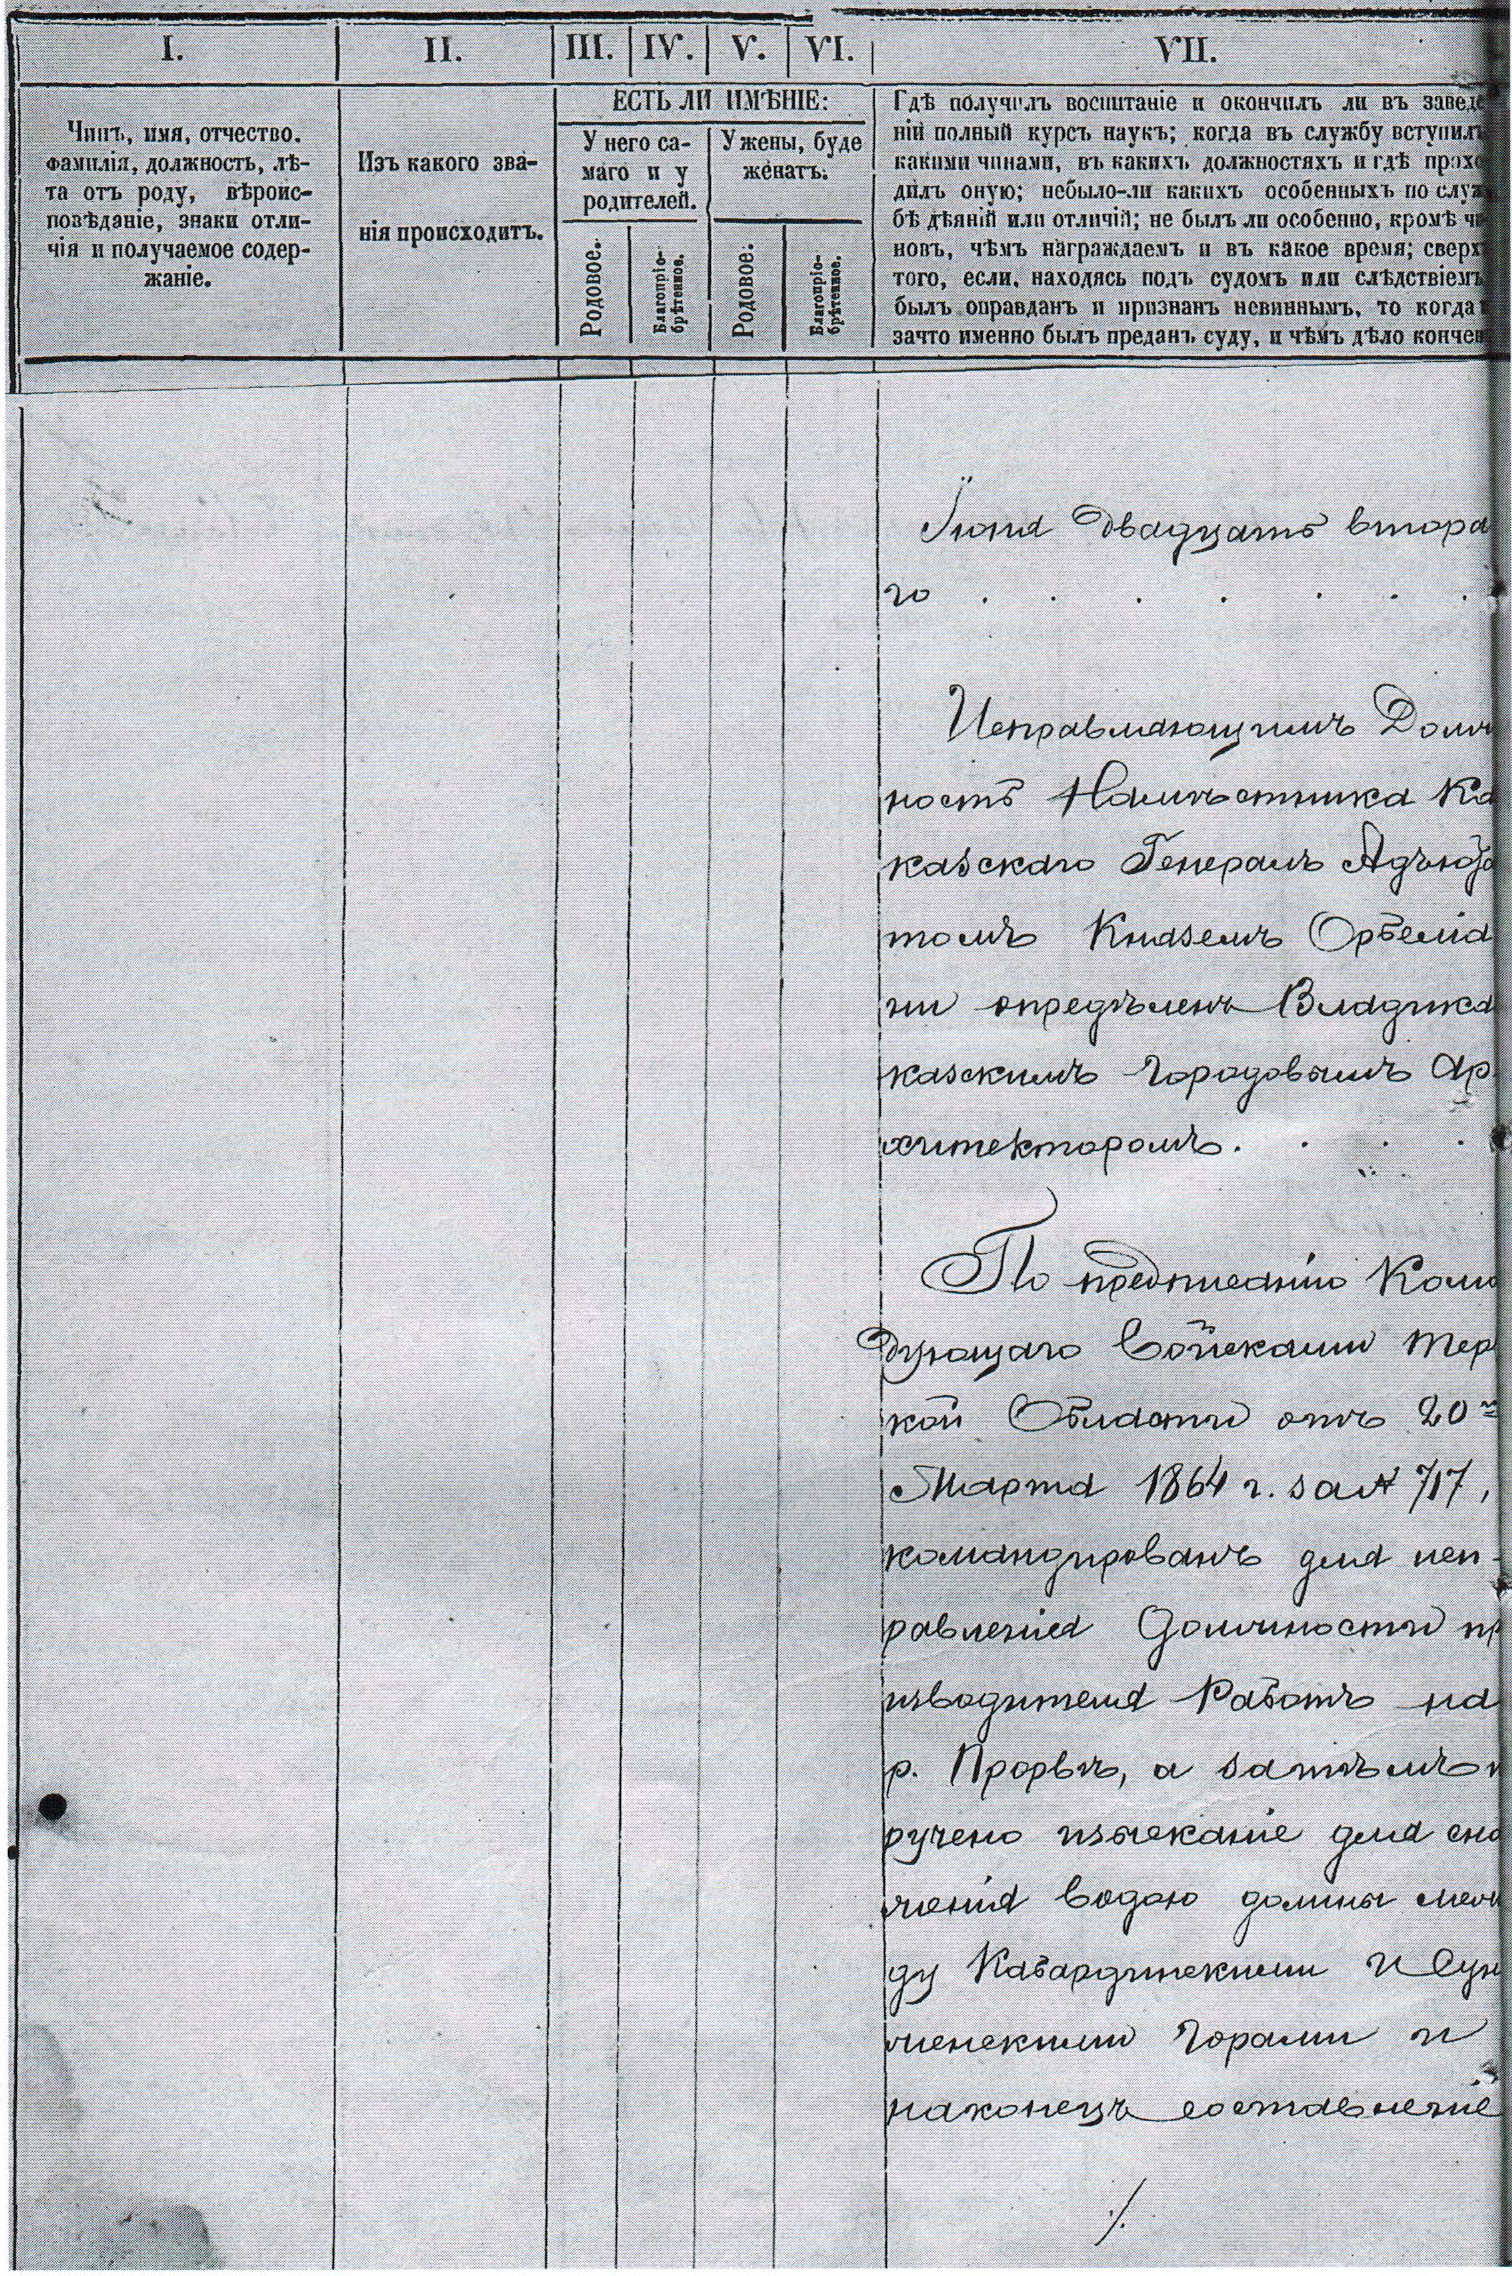 I.
II.
III.
IV.
V.
VI.
VII.
Чинъ, имя, отчество.
фамилія, должность, лѣ-
та отъ роду, вѣроис-
повѣданіе, знаки отли-
чія и получаемое содер-
жаніе.
Изъ какого зва-
нія происходитъ.
ЕСТЬ ЛИ ИМѢНІЕ:
У него са-
маго и у
родителей.
У жены, буде
женатъ.
Родовое.
Благопріо-
брѣтенное.
Родовое.
Благопріо-
брѣтенное.
Гдѣ получилъ воспитаніе и окончилъ ли въ заведе
ніи полный курсъ наукъ; когда въ службу вступилъ
какими чинами, въ какихъ должностяхъ и гдѣ прохо
дилъ оную; небыло-ли какихъ особенныхъ по служ
бѣ дѣяній или отличій; не былъ ли особенно, кромѣ чи
новъ, чѣмъ награждаемъ и въ какое время; сверхъ
того, если, находясь подъ судомъ или слѣдствіемъ
былъ оправданъ и признанъ невиннымъ, то когда и
зачто именно былъ преданъ суду, и чѣмъ дѣло кончен
Іюня двадцать втора
го . . . . . . .
Исправляющимъ Долж
ность Намѣстника Ка
казскаго Генералъ Адъюта
томъ Княземъ Орбеліа
ни опредѣленъ Владика
казскимъ городовымъ Ар
хитекторомъ. . . .
По предписанію Кома
дующаго Войсками Тер
кой Области отъ 20го
Марта 1864 г. за № 717,
командированъ для исп-
равленія Должности пр
изводителя Работъ на
р. Прорвѣ, а затѣмъ п
ручено изысканіе для сна
женія водою долины меж
ду Кабардинскими и Сун
женскими горами и
наконецъ составленіе
./.